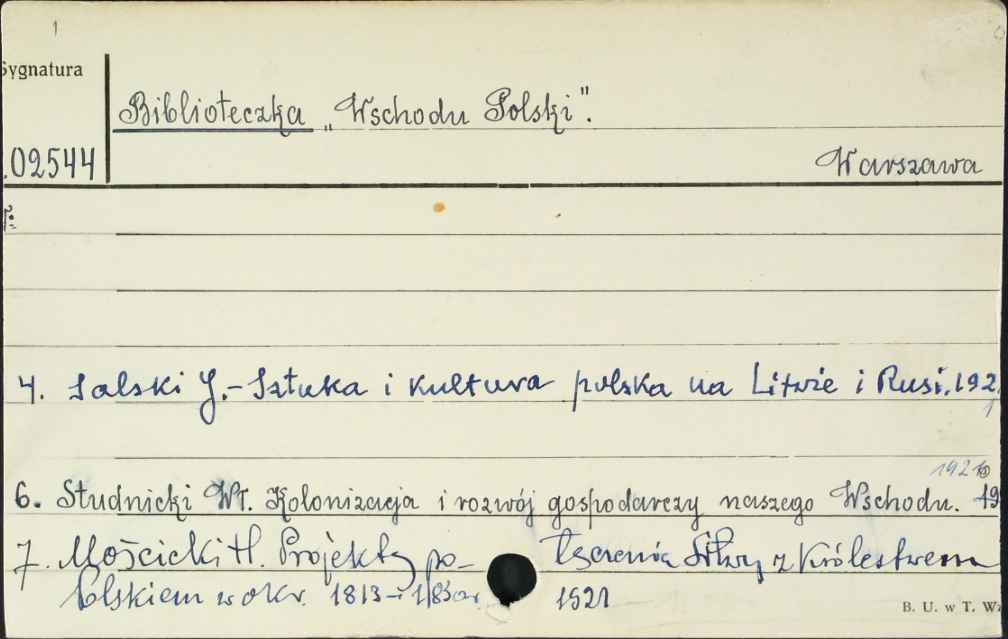 1
Sygnatura
Biblioteczka „Wschodu Polski".
.02544
Warszawa
4. Jalski J. - Sztuka i kultura polska na Litwie i Rusi. 192
1
192
6. Studnicki Wł. Kolonizacja i rozwój gospodarczy naszego Wschodu. 19
7. Mościcki H. Projekty po-łączenia Litwy z Królestwem
Polskiem w okr. 1813-1830 r. 1921
B. U. w T. W